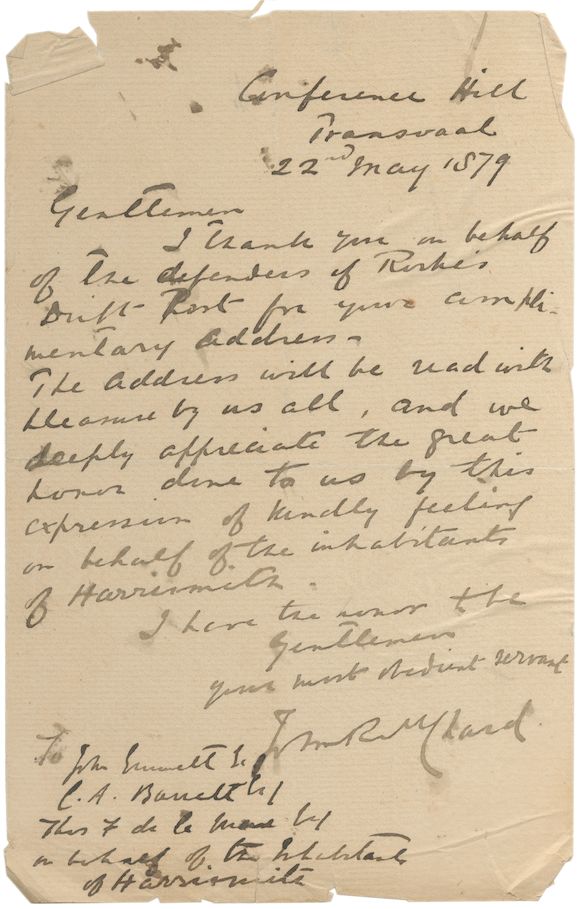 Conference Hill
Transvaal
22nd May 1879
Gentlemen
I thank you on behalf
of the defenders of Rorke's
Drift Post for your compli-
mentary Address -
The Address will be read with
pleasure by us all, and we
deeply appreciate the great
honor done to us by this
expression of kindly feeling
on behalf of the inhabitants
of Harrismith.
I have the honor to be
Gentlemen
your most obedient servant
John R M Chard.
To
John Emmett Esq
C. A. Barrett Esq
Thos F de la Esq
on behalf of the Inhabitants
of Harrismith